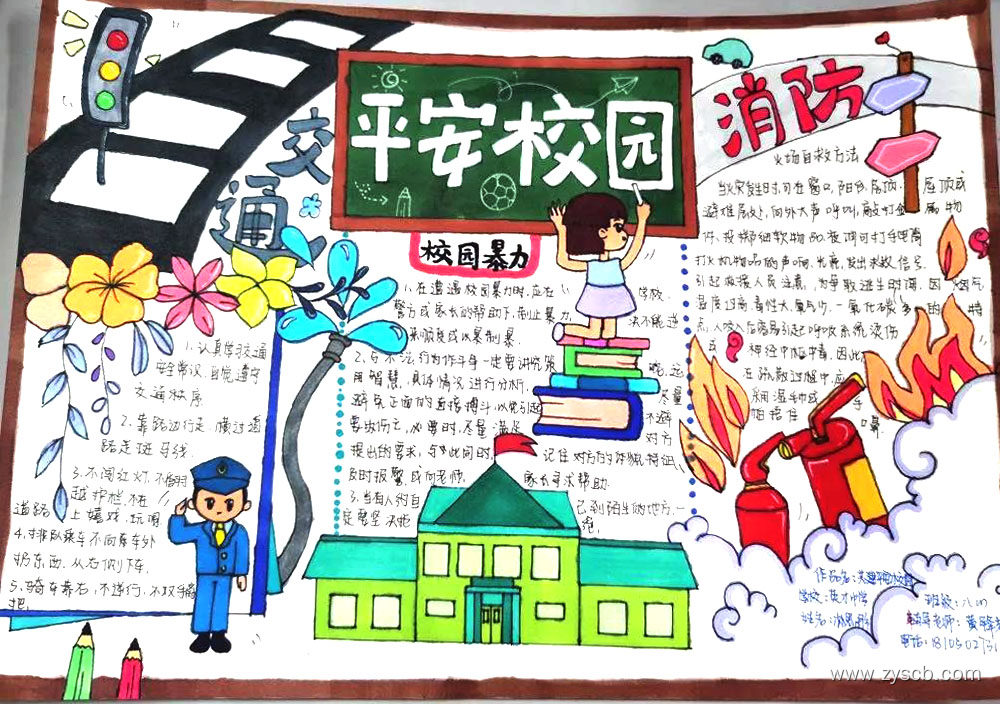 平安校园
交
通
消防
校园暴力
1.认真学习交通
安全常识,自觉遵守
交通秩序
2.靠路边行走,横过道
路走斑马线.
3.不闯红灯,不翻
越护栏,不在
道路上嬉戏、玩闹
4.排队乘车不向乘车外
扔东西.从右侧下车.
5.骑车靠右,不逆行,不双手
把.
1.在遭遇校园暴力时,应在学校、
警方或家长的帮助下,制止暴力,决不能逆
来顺受或以暴制暴.
2.与不法行为作斗争一定要讲究策略,运
用智慧.具体情况进行分析,尽量
避免正面的直接搏斗,以免引起不
要时,尽量满足对方
提出的要求,与此同时,记住对方的体貌特征,
及时报警或向老师、家长寻求帮助.
3.当有人约自己到陌生的地方,一
定要坚决拒绝
火场自救方法
当火灾发生时,可在窗口,阳台,屋顶或
避难层处,向外大声呼叫,敲打金属物
件、投掷细软物品、夜间可打手电筒
打火机物品的声响、光亮,发出求救信号.
引起救援人员注意,为争取逃生时间.因烟气
温度过高,毒性大,氧气少,一氧化碳多的特
点,人吸入后容易引起呼吸系统烫伤
或神经中枢中毒,因此
在疏散过程中,应
采用湿毛巾或手
帕捂住口鼻.
作品名:
学校:英才中学
班级:八
姓名:
辅导老师:黄
电话:
www.zyscb.com